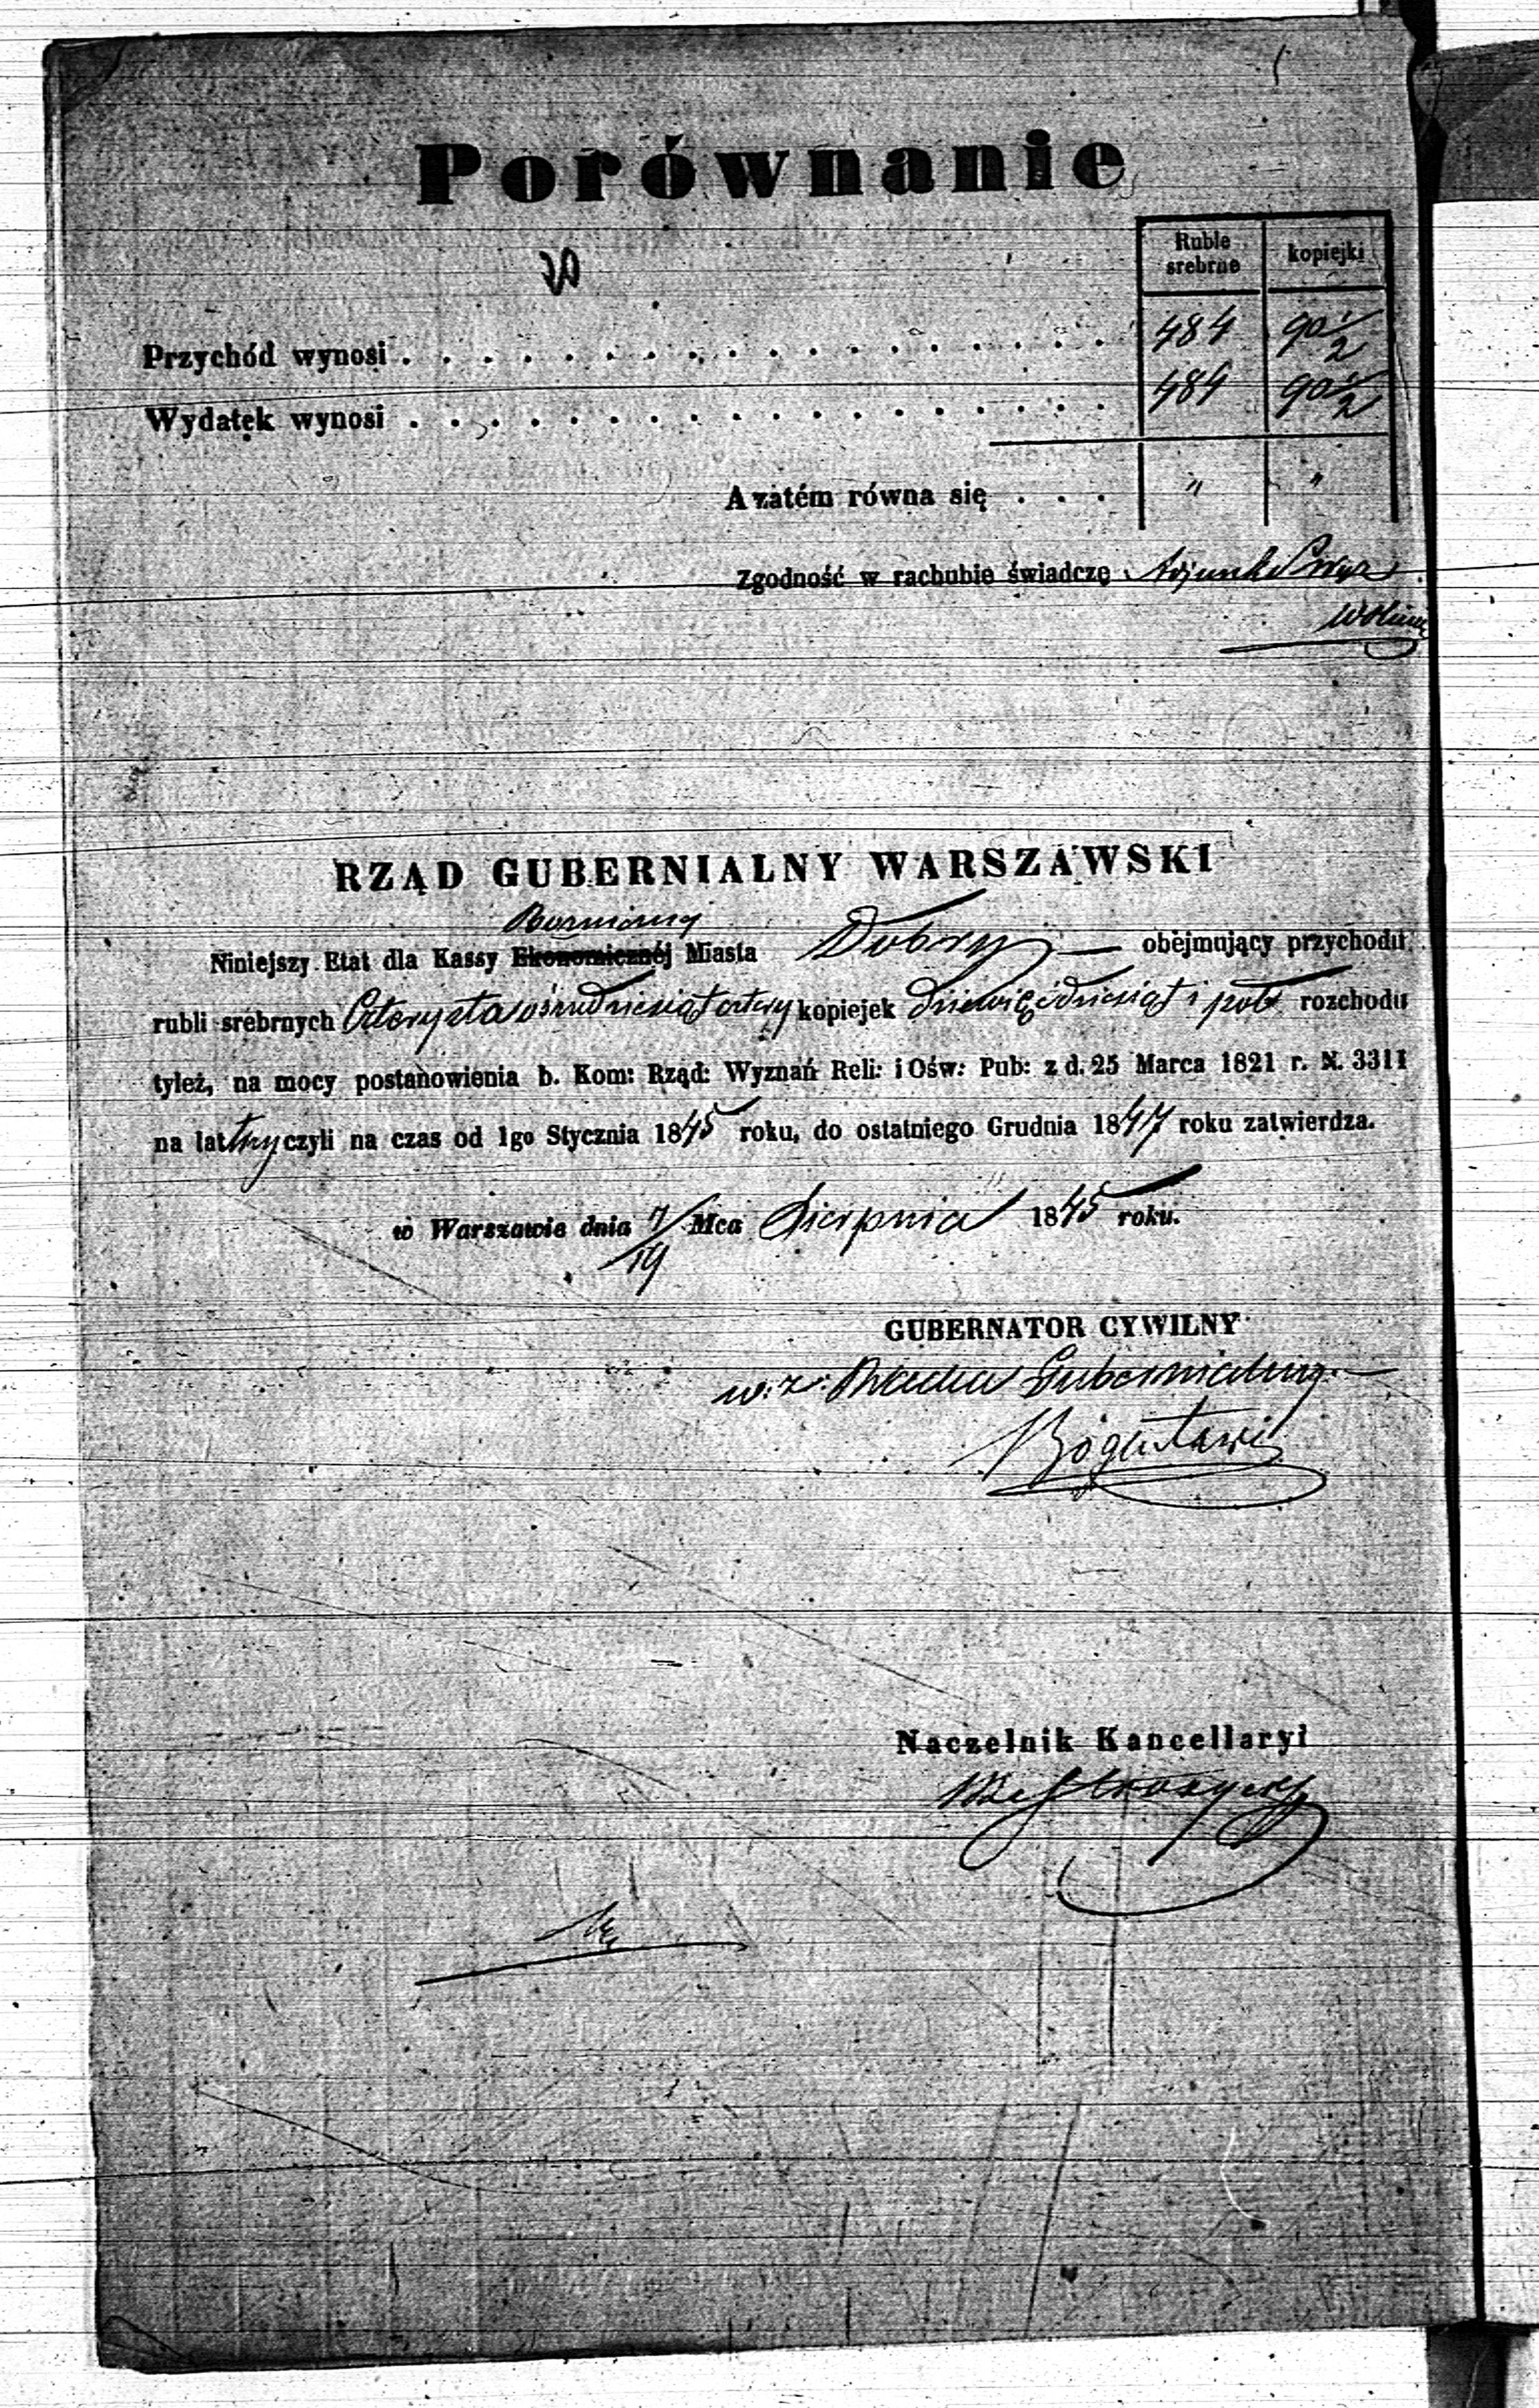 Porównanie
Ruble kopiejki
srebrne
Przychód wynosi . . . . . . . . . . . . . . . . . 484 90 1/2
Wydatek wynosi . . . . . . . . . . . . . . . . . 484 90 1/2
A zatém równa się . . . " "
Zgodność w rachubie świadczę Adjunkt
RZĄD GUBERNIALNY WARSZAWSKI
Bożniczny
Niniejszy Etat dla Kassy Ekonomicznéj Miasta Dobry — obejmujący przychodu
rubli srebrnych Czterysta ośmdziesiąt cztery kopiejek dziewięćdziesiąt i pół rozchodu
tyleż, na mocy postanowienia b. Kom: Rząd: Wyznań Reli: i Ośw: Pub: z d. 25 Marca 1821 r. N. 3311
na lat trzy czyli na czas od 1go Stycznia 1845 roku, do ostatniego Grudnia 1847 roku zatwierdza.
w Warszawie dnia 7/19 Mca Sierpnia 1845 roku.
GUBERNATOR CYWILNY
w. z. Radca Gubernialny
Bogusławski
Naczelnik Kancellaryi